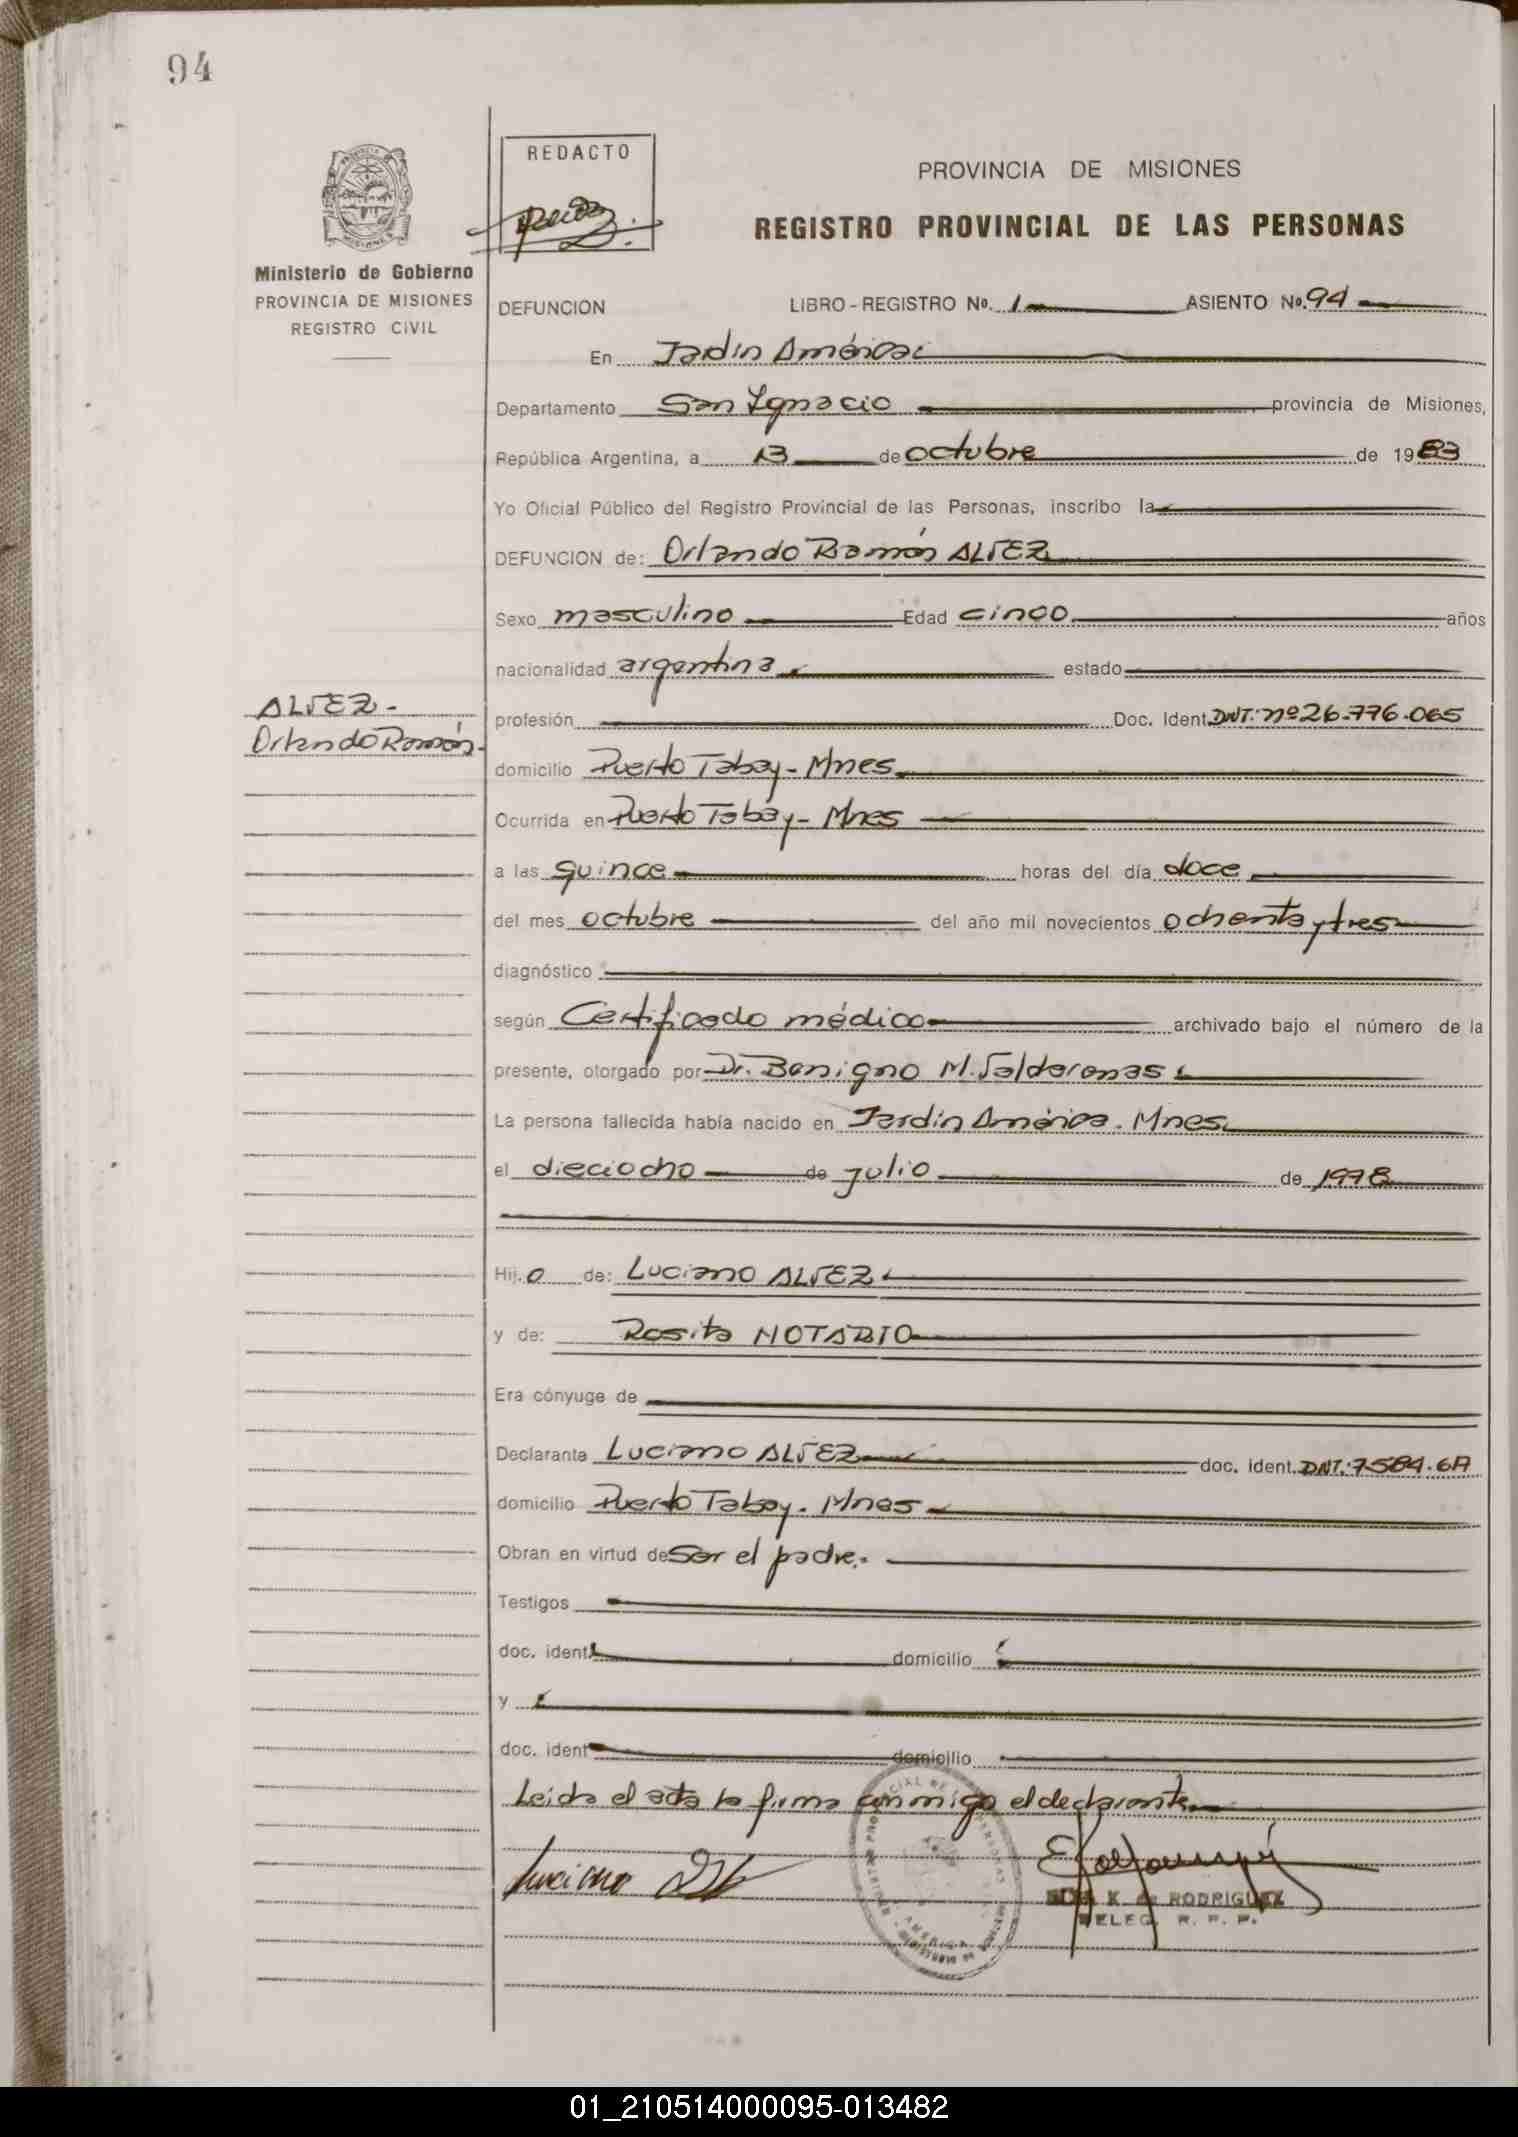 94
REDACTO
PROVINCIA DE MISIONES
REGISTRO PROVINCIAL DE LAS PERSONAS
Ministerio de Gobierno
PROVINCIA DE MISIONES
REGISTRO CIVIL
DEFUNCION LIBRO-REGISTRO Nº. 1 ASIENTO Nº. 94
En Jardín América
Departamento San Ignacio, provincia de Misiones,
República Argentina, a 13 de octubre de 1983
Yo Oficial Público del Registro Provincial de las Personas, inscribo la
DEFUNCION de: Orlando Ramón ALVEZ
Sexo masculino Edad cinco años
nacionalidad argentina estado
ALVEZ-
Orlando Ramón-
profesión Doc. Ident. DNI. nº 26.776.065
domicilio Puerto Tabay- Mnes
Ocurrida en Puerto Tabay- Mnes
a las quince horas del día doce
del mes octubre del año mil novecientos ochenta y tres
diagnóstico
según Certificado médico archivado bajo el número de la
presente, otorgado por Dr. Benigno M. Valdarenas
La persona fallecida había nacido en Jardín América. Mnes
el dieciocho de julio de 1978
Hij.o de: Luciano ALVEZ
y de: Rosita NOTARIO
Era cónyuge de
Declarante Luciano ALVEZ doc. ident. DNI.
domicilio Puerto Tabay. Mnes
Obran en virtud de Ser el padre.
Testigos
doc. ident. domicilio
y
doc. ident domicilio
Leida el acta la firma conmigo el declarante
Luciano
K. de RODRIGUEZ
DELEG. R. P. P.
01_210514000095-013482